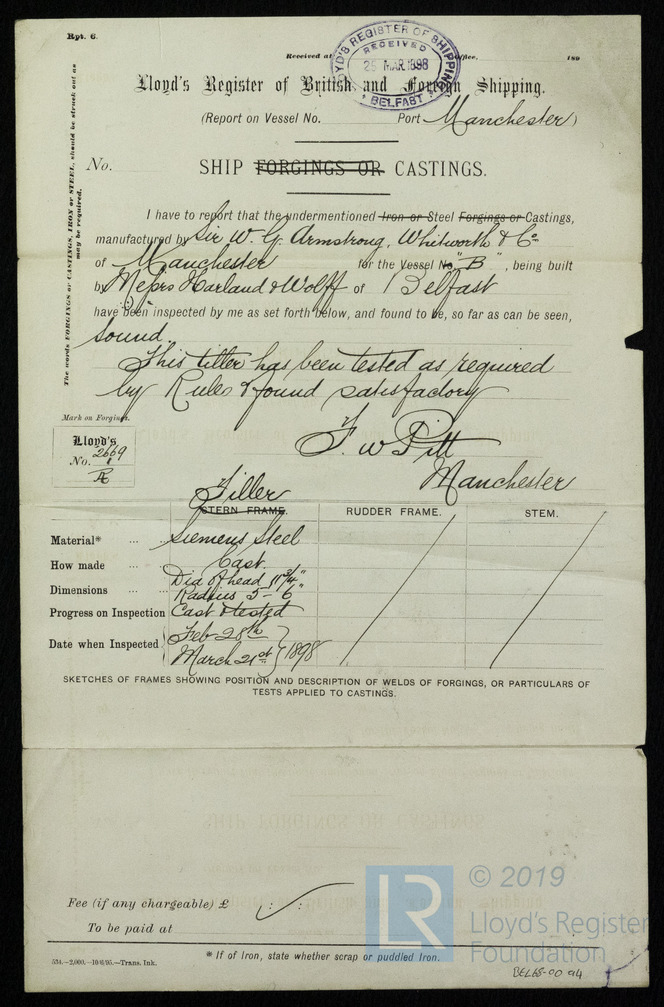 Rpt. 6.
Received at
Office,
189
LLOYD'S REGISTER OF SHIPPING
RECEIVED
25 MAR. 1898
BELFAST
Lloyd's Register of British and Foreign Shipping.
(Report on Vessel No. Port Manchester)
No.
SHIP FORGINGS OR CASTINGS.
The words FORGINGS or CASTINGS, IRON or STEEL, should be struck out as
may be required.
I have to report that the undermentioned Iron or Steel Forgings or Castings,
manufactured by Sir W. G. Armstrong, Whitworth & Co
of Manchester for the Vessel No "B", being built
by Messrs Harland & Wolff of Belfast
have been inspected by me as set forth below, and found to be, so far as can be seen,
sound.
This tiller has been tested as required
by Rules & found satisfactory
Mark on Forging.
Lloyd's
No. 2669
F. W Pitt
Manchester
Tiller
STERN FRAME. RUDDER FRAME. STEM.
Material* ... ... Siemens Steel
How made ... Cast.
Dimensions ... Dia of head 11 3/4"
Radius 5-6"
Progress on Inspection Cast & tested
Date when Inspected Feb 28th
March 21st 1898
SKETCHES OF FRAMES SHOWING POSITION AND DESCRIPTION OF WELDS OF FORGINGS, OR PARTICULARS OF
TESTS APPLIED TO CASTINGS.
Fee (if any chargeable) £ : :
To be paid at
* If of Iron, state whether scrap or puddled Iron.
534.—2,000.—10/6/95.—Trans. Ink.
LR
© 2019
Lloyd's Register
Foundation